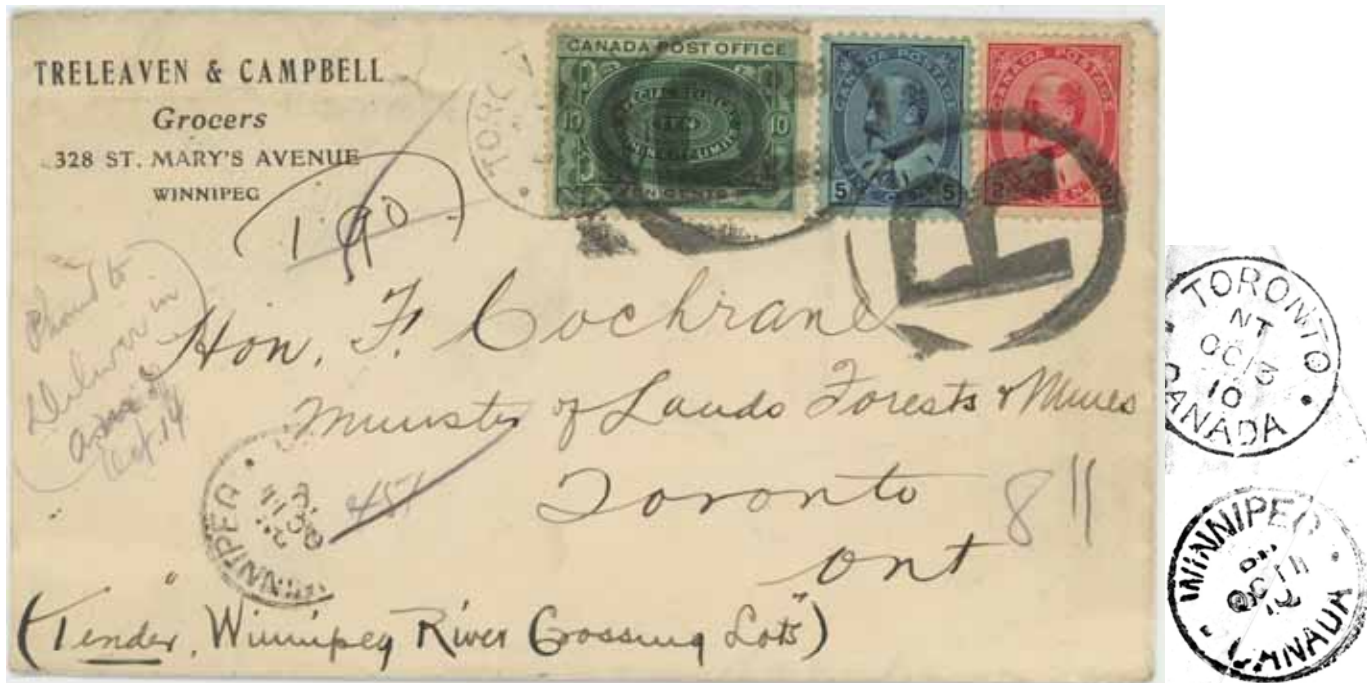 TRELEAVEN & CAMPBELL
Grocers
328 ST. MARY'S AVENUE
WINNIPEG
CANADA POST OFFICE
10 TEN 10
TEN CENTS
CANADA POSTAGE
5 5
CANADA POSTAGE
2 2
TORO
R
190
Deliver in
Oct. 14
Hon. F. Cochrane
Minister of Lands Forests & Mines
Toronto
Ont
8 11
451
WINNIPEG
OC 11
("Tender, Winnipeg River Crossing Lots")
TORONTO
NT
OC 13
10
CANADA
WINNIPEG
OC 11
CANADA